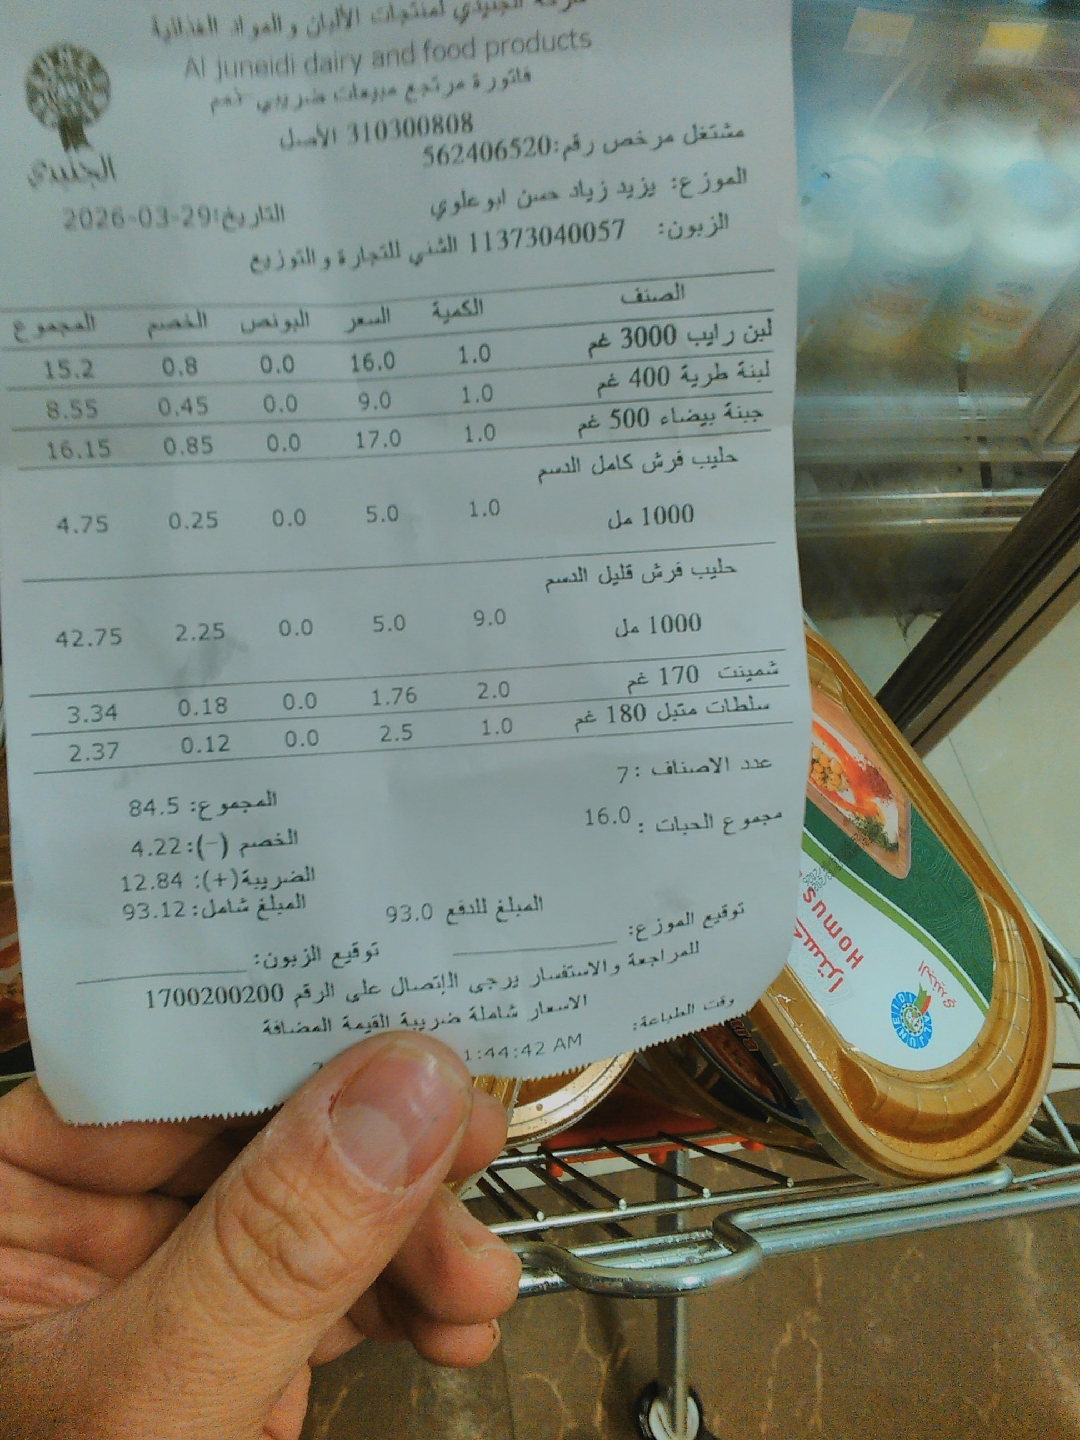 شركة الجنيدي لمنتجات الألبان والمواد الغذائية
Al juneidi dairy and food products
فاتورة مرتجع مبيعات ضريبي ذمم
310300808 الأصل
مشتغل مرخص رقم:562406520
الجنيدي
الموزع: يزيد زياد حسن ابو علوي
التاريخ:2026-03-29
الزبون: 11373040057 الشني للتجارة والتوزيع
الصنف الكمية السعر البونص الخصم المجموع
لبن رايب 3000 غم 1.0 16.0 0.0 0.8 15.2
لبنة طرية 400 غم 1.0 9.0 0.0 0.45 8.55
جبنة بيضاء 500 غم 1.0 17.0 0.0 0.85 16.15
حليب فرش كامل الدسم
1000 مل 1.0 5.0 0.0 0.25 4.75
حليب فرش قليل الدسم
1000 مل 9.0 5.0 0.0 2.25 42.75
شمينت 170 غم 2.0 1.76 0.0 0.18 3.34
سلطات متبل 180 غم 1.0 2.5 0.0 0.12 2.37
عدد الاصناف : 7
المجموع: 84.5
مجموع الحبات : 16.0
الخصم (-): 4.22
الضريبة(+): 12.84
المبلغ شامل: 93.12
المبلغ للدفع 93.0
توقيع الموزع:
توقيع الزبون:
للمراجعة والاستفسار يرجى الإتصال على الرقم 1700200200
الاسعار شاملة ضريبة القيمة المضافة
وقت الطباعة: 1:44:42 AM
Homus
JUNEIDI